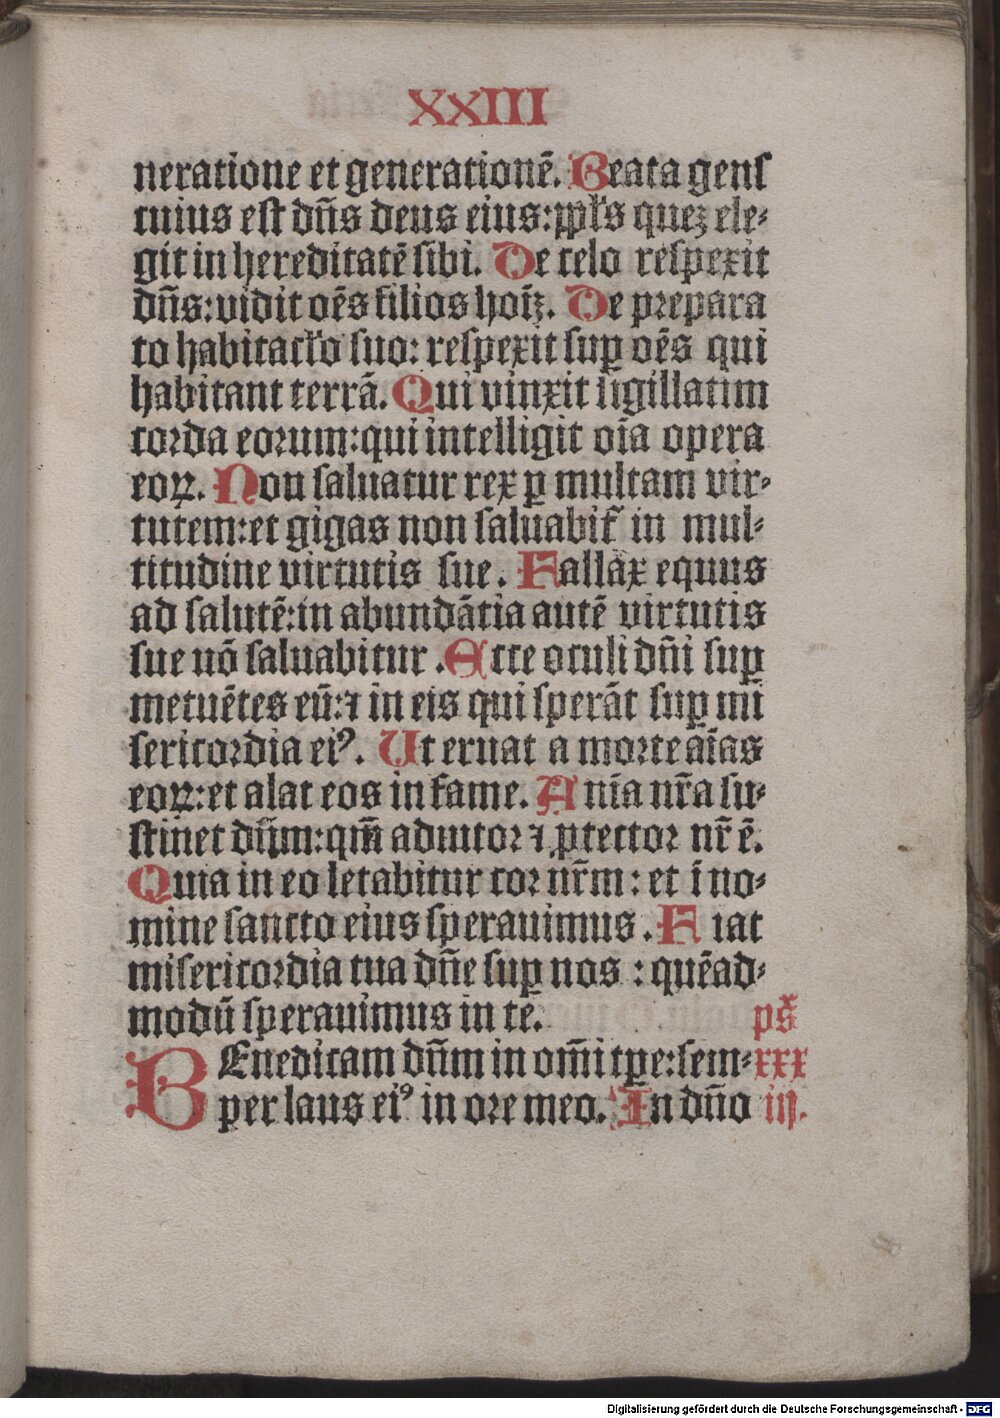 XXIII
neratione et generationē. Beata genſ
cuius eſt dn̄s deus eius: pp̄ls quez ele⸗
git in hereditatē ſibi. De celo reſpexit
dn̄s: vidit oēs filios hoīꝫ. De prepara
to habitacl̄o ſuo: reſpexit ſuꝑ oēs qui
habitant terrā. Qui vinxit ſigillatim
corda eorum: qui intelligit oīa opera
eoꝝ. Non ſaluatur rex ꝑ multam vir⸗
tutem: et gigas non ſaluabit᷑ in mul⸗
titudine virtutis ſue. Fallax equus
ad ſalutē: in abundātia autē virtutis
ſue nō ſaluabitur. Ecce oculi dn̄i ſuꝑ
metuētes eū: ⁊ in eis qui ſperāt ſuꝑ mi
ſericordia eiꝰ. Ut eruat a morte aīas
eoꝝ: et alat eos in fame. Anīa nr̄a ſu⸗
ſtinet dn̄m: qm̄ adiutor ⁊ ꝓtector nr̄ ē.
Quia in eo letabitur cor nr̄m: et ī no⸗
mine ſancto eius ſperauimus. Fiat
miſericordia tua dn̄e ſuꝑ nos: quēad⸗
modū ſperauimus in te. ps̄
BEnedicam dn̄m in om̄i tꝑe: ſem⸗ xxx
per laus eiꝰ in ore meo. In dn̄o iij.
Digitalisierung gefördert durch die Deutsche Forschungsgemeinschaft - DFG